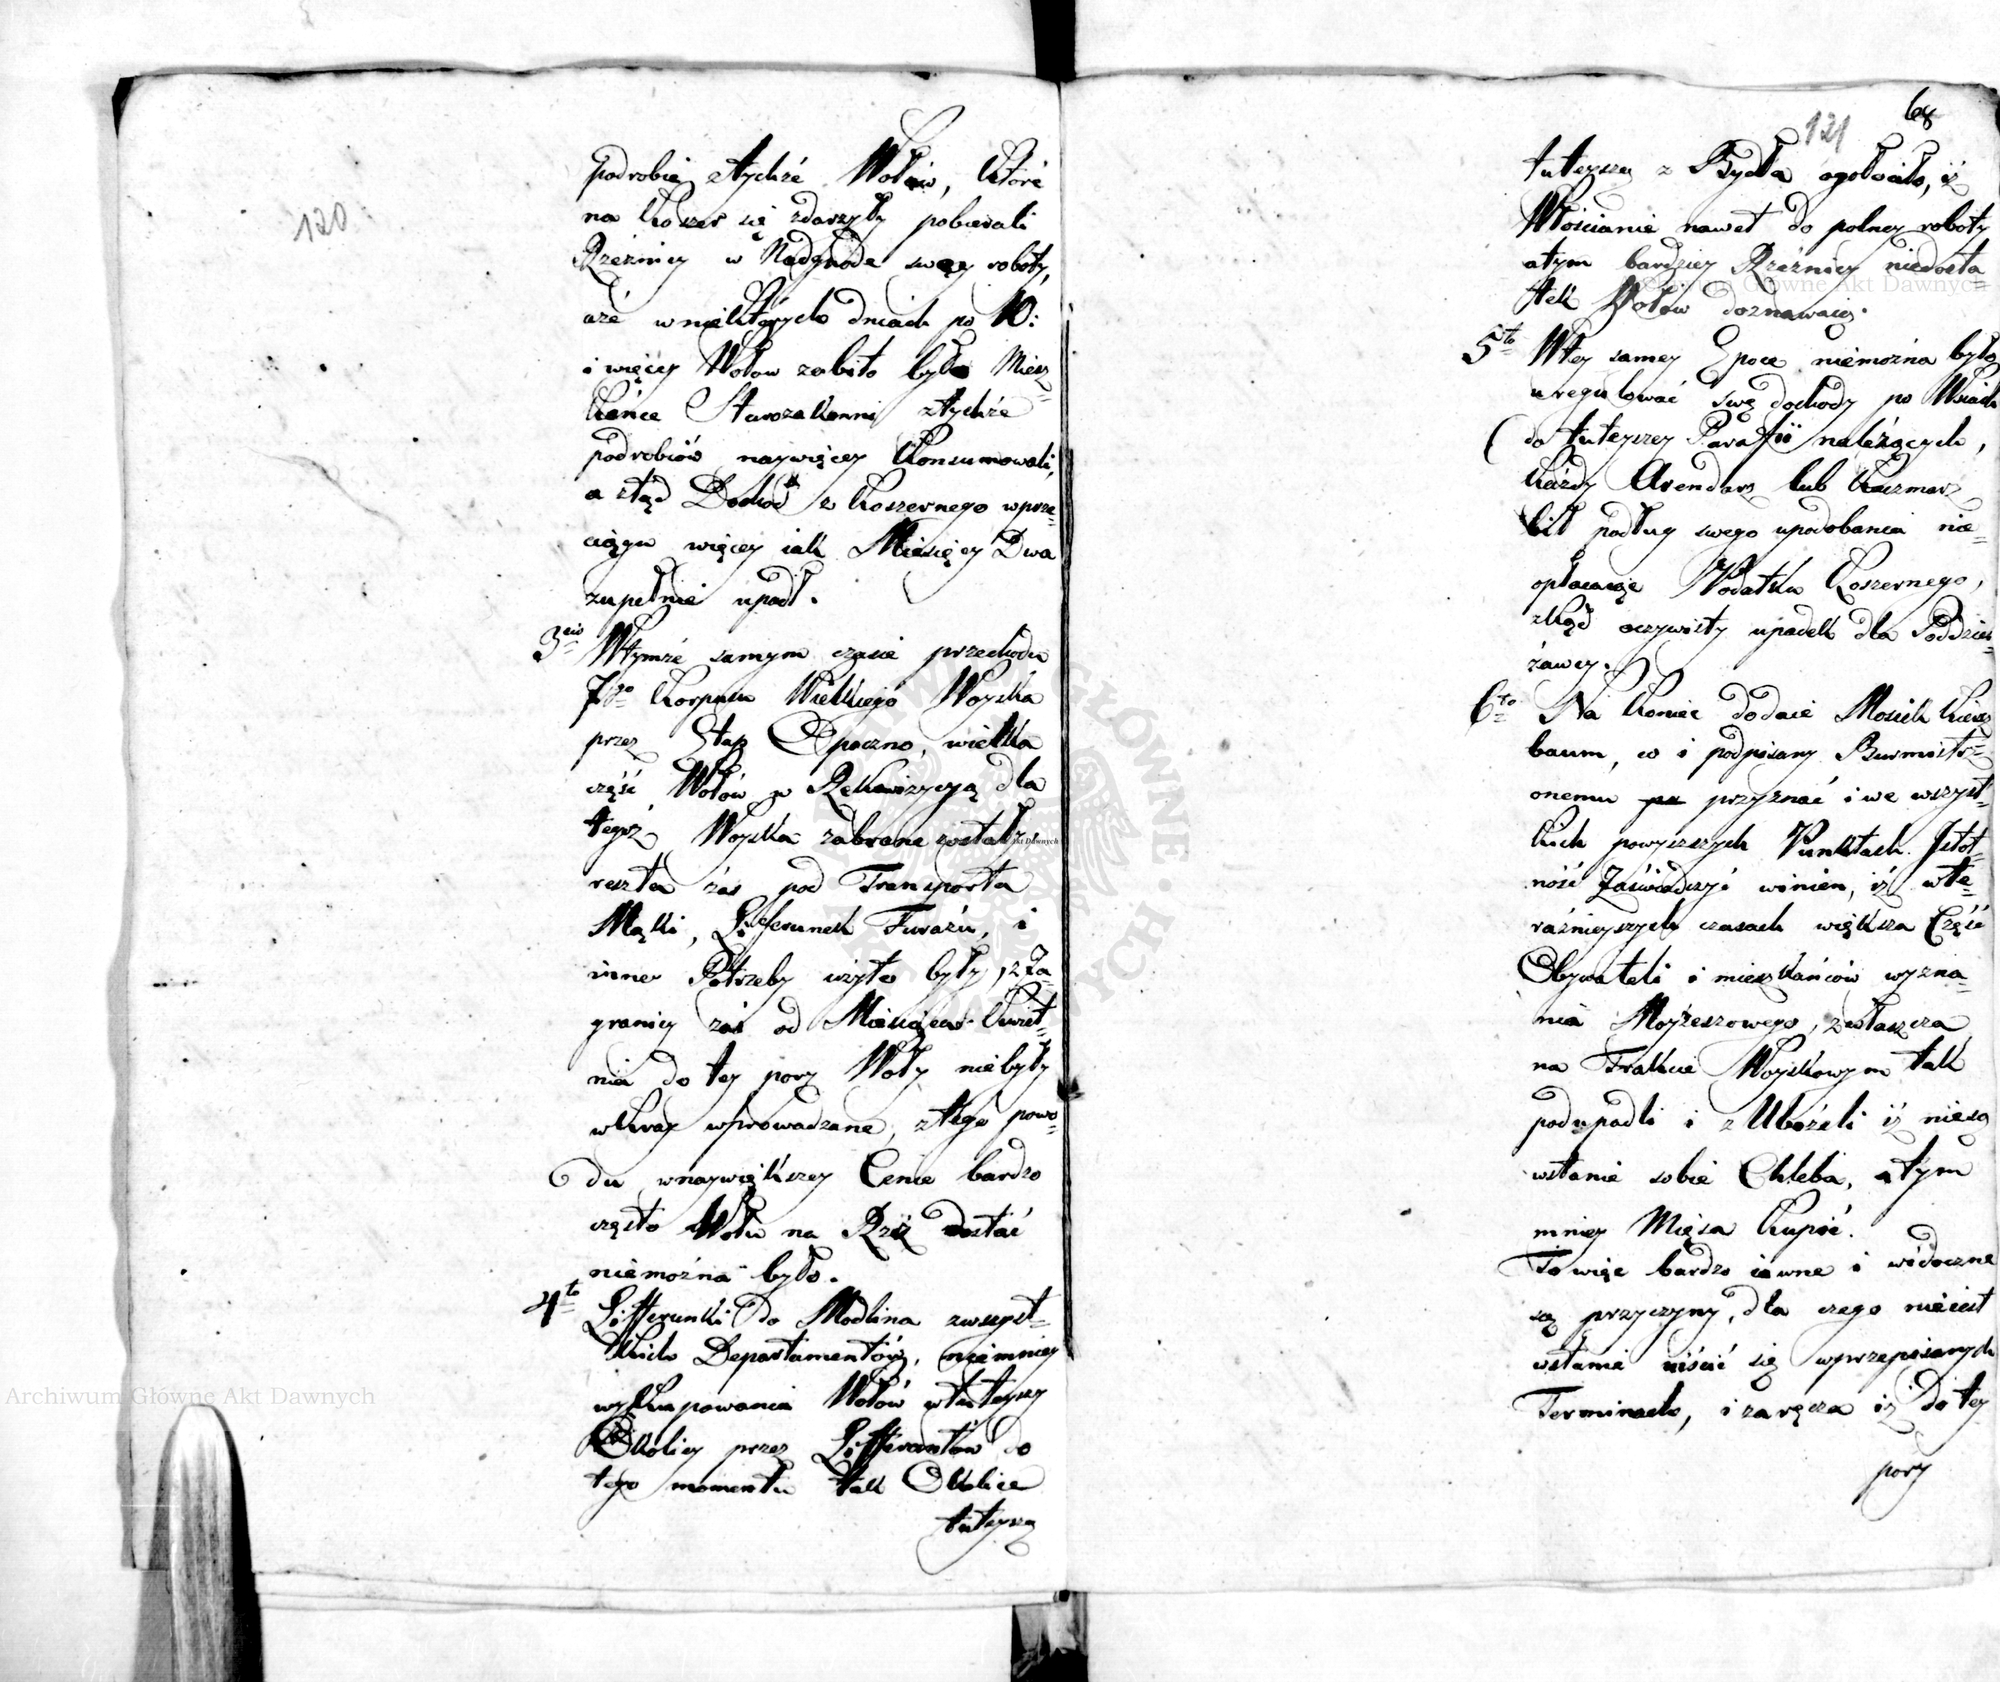 120
podrobie ztychże Wołów, które
na koszer się zdarzyły pobierali
Rzeźnicy w Nadgrode swey roboty,
aże wniektórych dniach po 10:
i więcey Wołow zabito było Miesz=
kańce Starozakonni ztychże
podrobiów naywięcey konsumowali,
a ztąd Dochod z koszernego wprze=
ciągu więcey iak Miesięcy Dwa
zupełnie upadł.
3cio Wtymże samym czasie przechodu
7go korpusu Wielkiego Woyska
przez Etap Opoczno, wielka
część Wołów w Rekwizycyą dla
tegoż Woyska zabrane zostały
reszta zas pod Transporta
Mąki, Lifferunek Furażu, i
inne Potrzeby użyte były, z Za=
granicy zaś od Miesiąca kwiet=
nia do tey pory Woły niebyły
wkray wprowadzane, ztego powo=
du wnaywiększey Cenie bardzo
często Wołu na Rzeź dostać
niemożna było.
4to Lifferunki do Modlina zwszyst=
kich Departamentów, niemniey
wykupowania Wołów wtuteyszey
Okolicy przez Lifferantów do
tego momentu tak Okolice
tuteyszą
121
68
tuteyszą z Bydła ogołociło, iż
Włościanie nawet do polney roboty
atym bardziey Rzeźnicy niedosta
tek Wołów doznawaią.
5to Wtey samey Epoce niemożna było
uregulować swe dochody po Wsiach
do tuteyszey Parafii należących,
każdy Arendarz lub karczmarz
bił podług swego upodobania nie=
opłacaiąc Podatku koszernego,
zkąd oczywisty upadek dla Poddzier=
żawcy.
6to Na koniec dodaie Mosiek kiersz
baum, co i podpisany Burmistrz
onemu przyznać i we wszyst=
kich powyzszych Punktach Istot=
ność Zaświadczyć winien, iż wte=
raźnieyszych czasach większa Część
Obywateli i mieszkańców wyzna=
nia Moyżeszowego, zwłaszcza
na Trakcie Woyskowym tak
podupadli i zUbożeli iż niesą
wstanie sobie Chleba, atym
mniey Mięsa kupić.
To więc bardzo iawne i widoczne
są przyczyny, dla czego nieiest
wstanie uiścić się wprzepisanych
Terminach, i zaręcza iż do tey
pory
Archiwum Główne Akt Dawnych